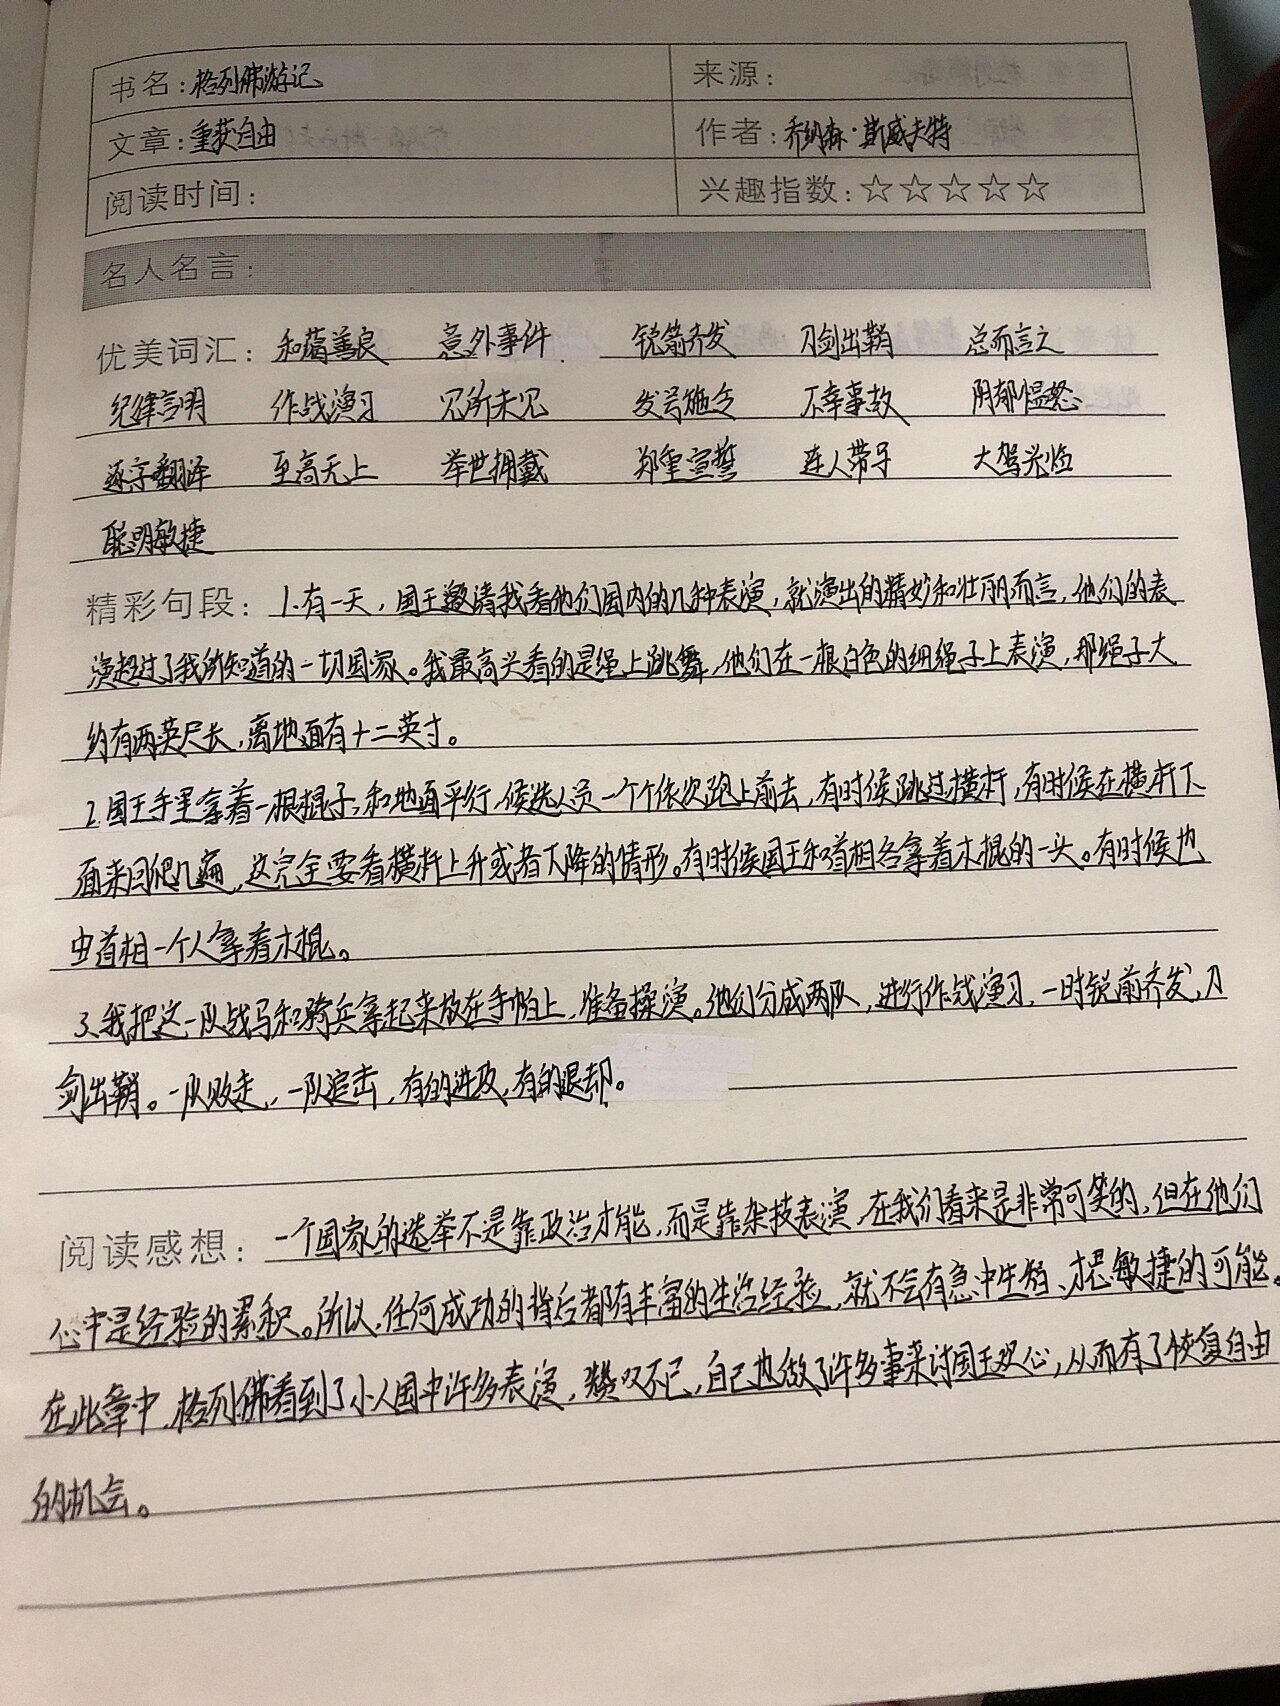 书名:格列佛游记 来源:
文章:重获自由 作者:乔纳森·斯威夫特
阅读时间: 兴趣指数:☆☆☆☆☆
名人名言:
优美词汇: 和蔼善良 意外事件 锐箭齐发 刀剑出鞘 总而言之
纪律言明 作战演习 见所未见 发号施令 不幸事故 阴郁愠怒
逐字翻译 至高无上 举世拥戴 郑重宣誓 连人带马 大驾光临
聪明敏捷
精彩句段: 1.有一天,国王邀请我看他们国内的几种表演,就演出的精妙和壮丽而言,他们的表
演超过了我所知道的一切国家。我最高兴看的是绳上跳舞,他们在一根白色的细绳子上表演,那绳子大
约有两英尺长,离地面有十二英寸。
2.国王手里拿着一根棍子,和地面平行,候选人员一个个依次跑上前去,有时候跳过横杆,有时候在横杆下
面来回爬几遍,这完全要看横杆上升或者下降的情形。有时候国王和首相各拿着木棍的一头。有时候也
由首相一个人拿着木棍。
3.我把这一队战马和骑兵拿起来放在手帕上,准备操演。他们分成两队,进行作战演习,一时锐箭齐发,刀
剑出鞘。一队败走,一队追击,有的进攻,有的退却。
阅读感想: 一个国家的选举不是靠政治才能,而是靠杂技表演,在我们看来是非常可笑的,但在他们
心中是经验的累积。所以,任何成功的背后都有丰富的生活经验,就不会有急中生智、才思敏捷的可能。
在此章中,格列佛看到了小人国中许多表演,赞叹不已,自己也做了许多事来讨国王欢心,从而有了恢复自由
的机会。